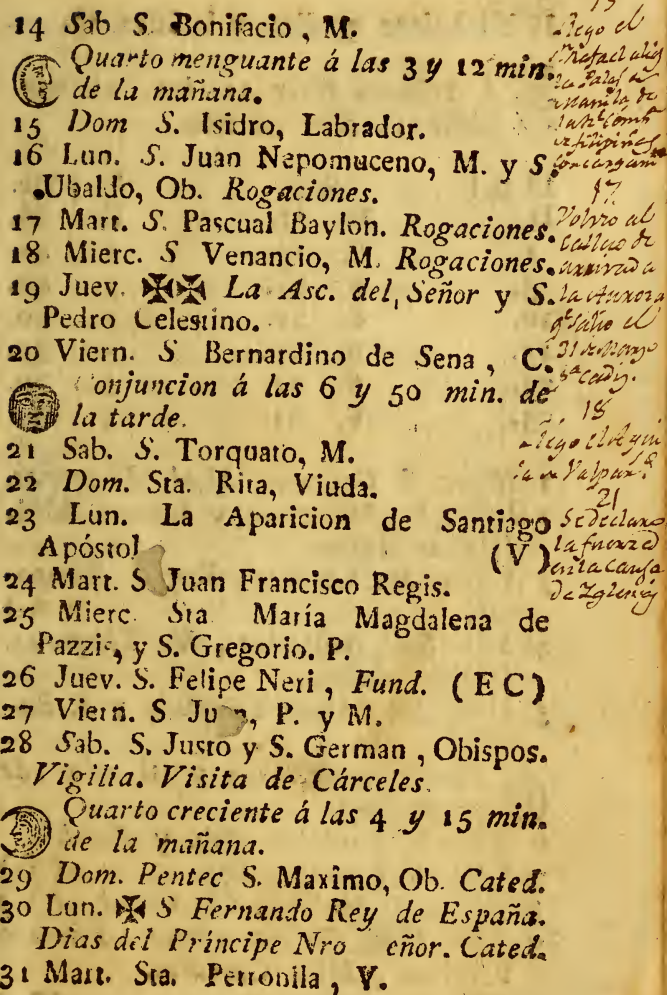 14 Sab S. Bonifacio, M.
Quarto menguante á las 3 y 12 min.
de la mañana.
15 Dom S. Isidro, Labrador.
16 Lun. S. Juan Nepomuceno, M. y S.
Ubaldo, Ob. Rogaciones.
17 Mart. S. Pascual Baylon. Rogaciones.
18 Mierc. S Venancio, M. Rogaciones.
19 Juev. ✠✠ La Asc. del Señor y S.
Pedro Celestino.
20 Viern. S Bernardino de Sena, C.
onjuncion á las 6 y 50 min. de
la tarde.
21 Sab. S. Torquato, M.
22 Dom. Sta. Rita, Viuda.
23 Lun. La Aparicion de Santiago
Apóstol (V)
24 Mart. S Juan Francisco Regis.
25 Mierc. Sta María Magdalena de
Pazzis, y S. Gregorio. P.
26 Juev. S. Felipe Neri, Fund. (EC)
27 Viern. S Juan, P. y M.
28 Sab. S. Justo y S. German, Obispos.
Vigilia. Visita de Cárceles.
Quarto creciente á las 4 y 15 min.
de la mañana.
29 Dom. Pentec S. Maximo, Ob. Cated.
30 Lun. ✠ S Fernando Rey de España.
Dias del Príncipe Nro eñor. Cated.
31 Mart. Sta. Petronila, V.
el
Rafael
Manila de
17
Volvio al
Callao de
arrivada
la Aurora
salio el
31 de Marzo
18
21
Se declaro
la fuerza
en la causa
de